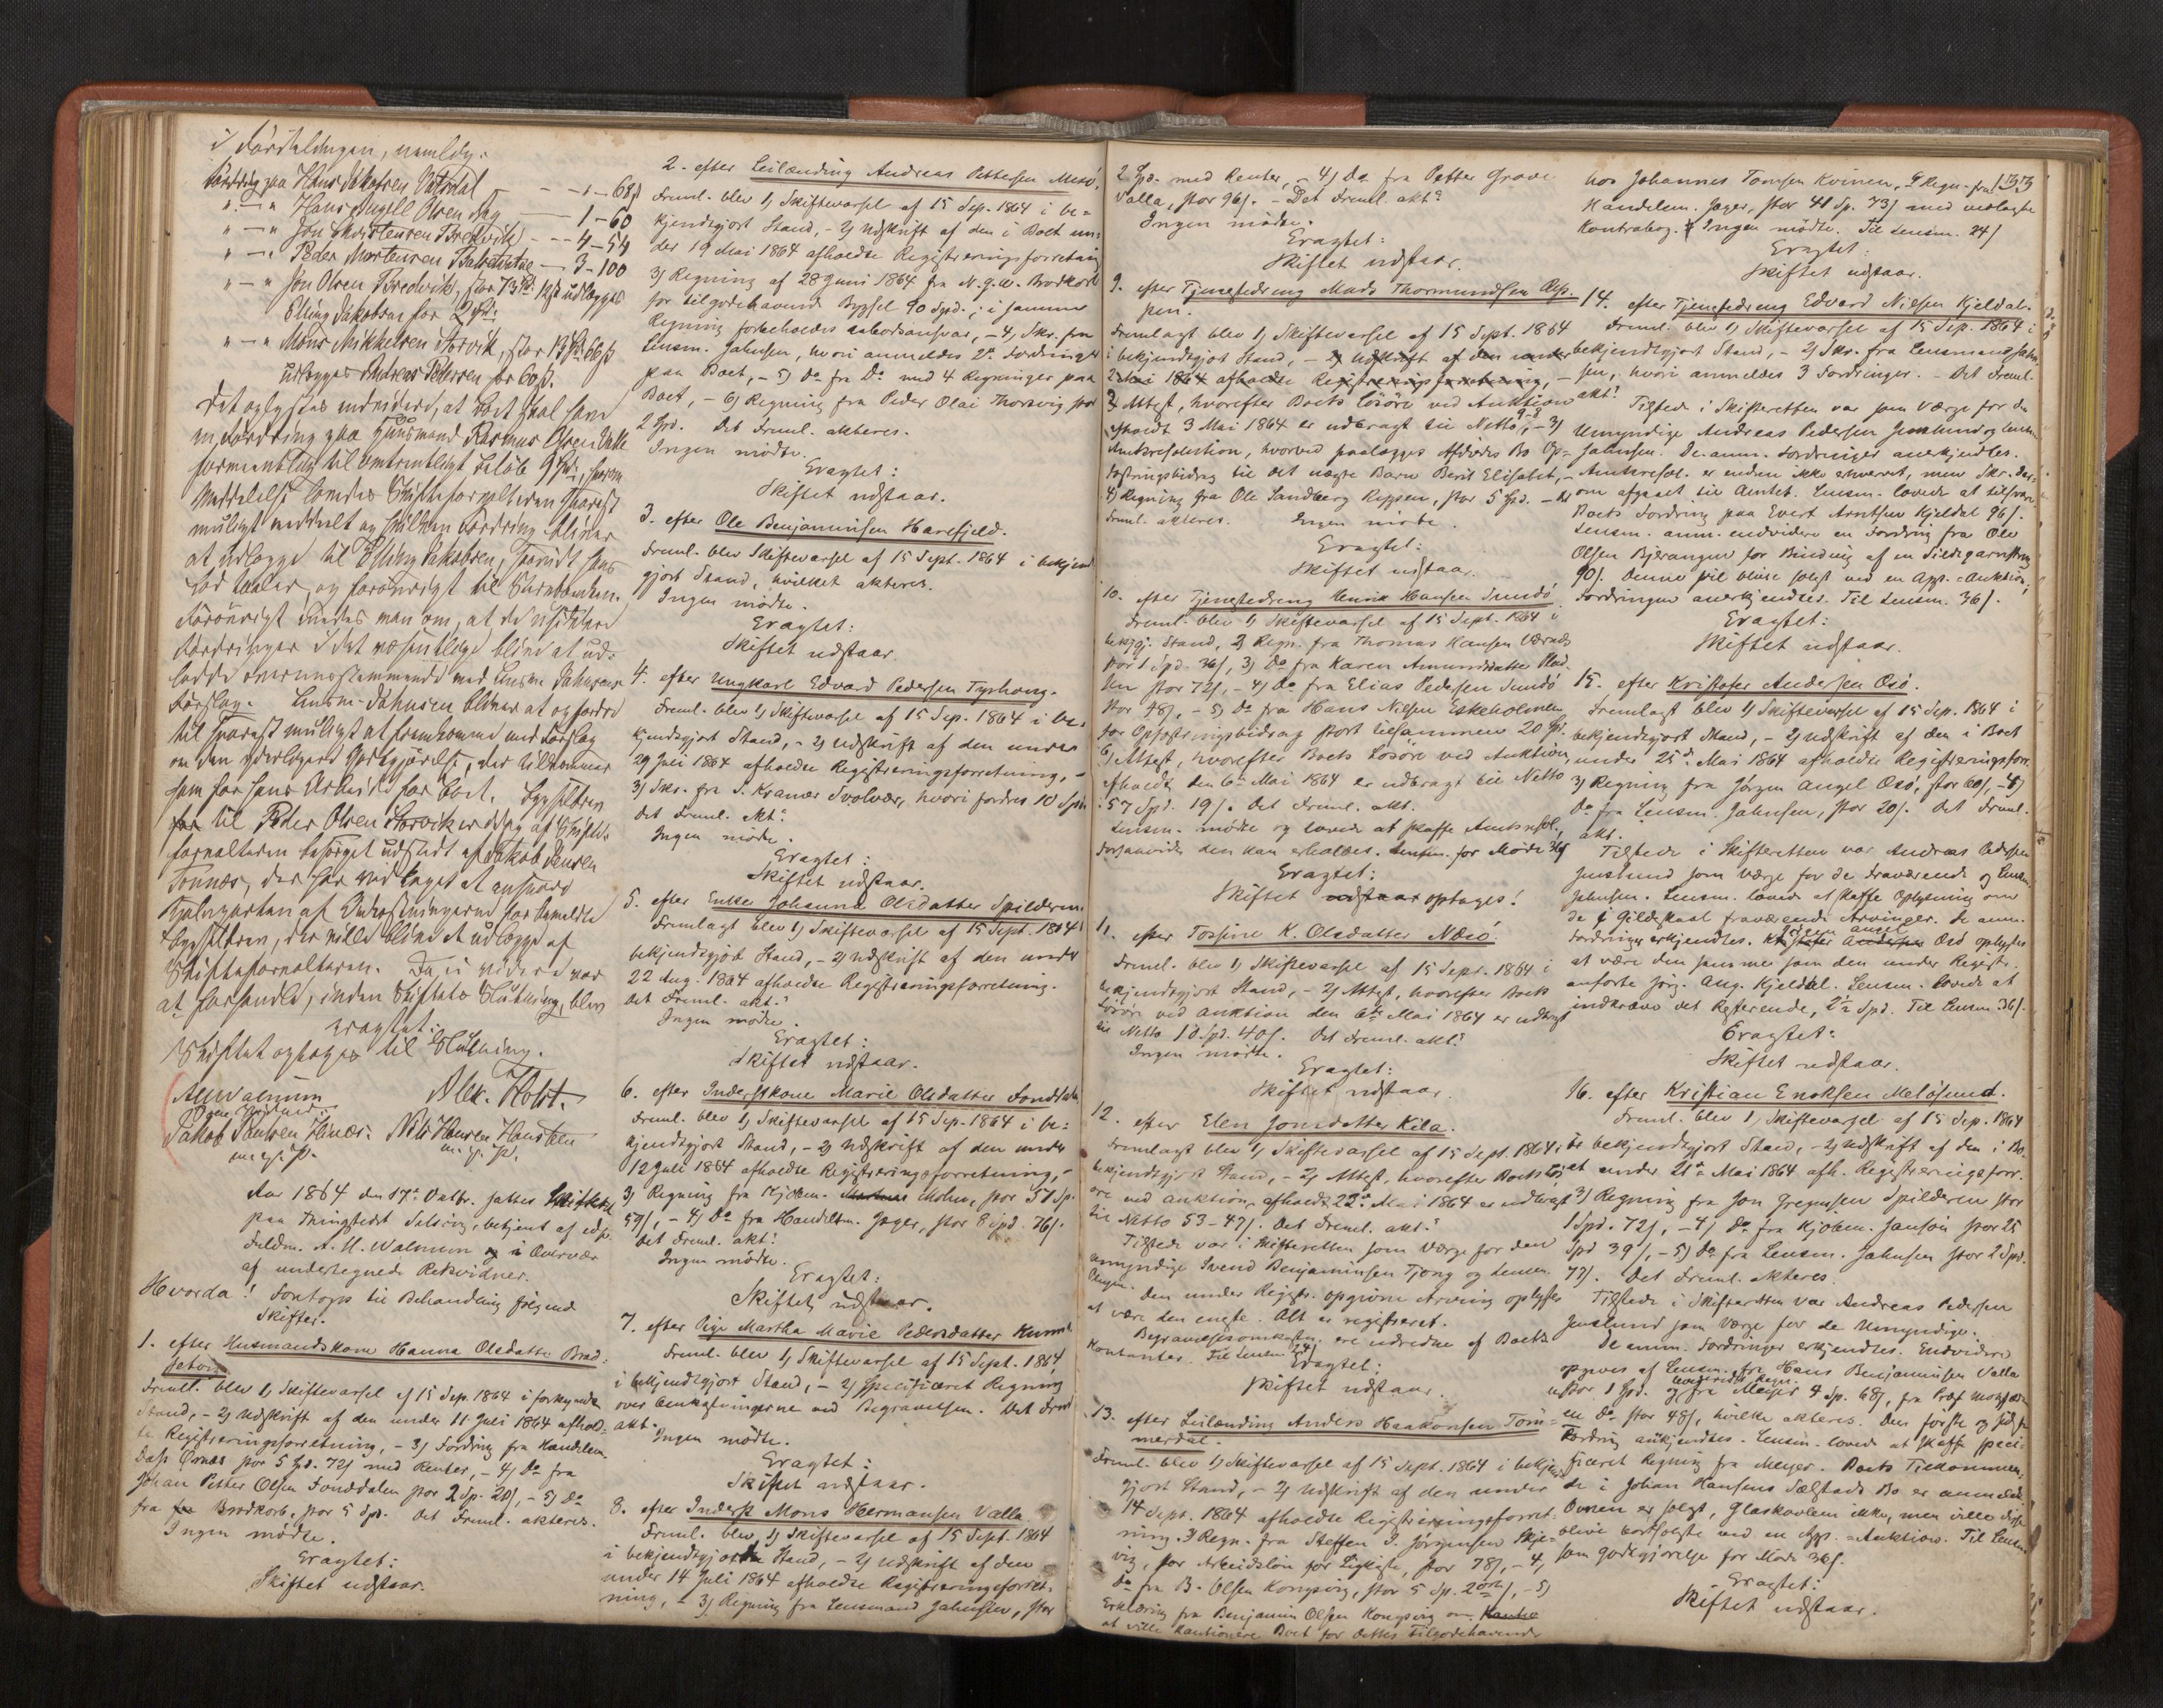 i Fordelingen, nemlig:
Fordring paa Hans Jakobsen Vatsdal — - - 1 - 68 ß
" — " Hans Angell Olsen Aag — 1 - 60
" — " Jon Mortensen Bredvik - - - 4 - 54
" — " Peder Mortensen — 3 - 100
" — " Jon Olsen Bredvik, stor 73 Sp. 12 ß udlægges
Elling Jakobsen for 2 Spd.
" — " Mons Mikkelsen Storvik, stor 13 Sp. 66 ß
udlægges Andreas Pedersen for 60 ß.
Det oplystes endvidere, at Boet skal have
en Fordring paa Huusmand Rasmus Olsen
formentlig til omtrentligt Beløb 9 Spd., hvorom
Meddelelse Skifteforvalteren snarest
muligt meddelt og hvilken Fordring bliver
at udlægge til Elling Jakobsen, forsaavidt hans
Lod taaler, og forøvrigt til
Forøvrigt enedes man om, at de usikkre
Fordringer i det væsentlige blive at ud-
lodde overensstemmende med Lensm. Jahnsens
Forslag. Lensm. Jahnsen bliver at opfordre
til snarest muligt at fremkomme med Forslag
om den yderligere Godtgjørelse, der tilkommer
ham for hans Arbeide for Boet. Bygselbrev
til Peder Olsen Storvik af Skifte-
forvalteren besørget udstedt af Jakob Jensen
Tonnes, der har vedtaget at ansvare
Halvparten af Omkostningerne for bemeldte
Bygselbrev, der ville blive at udlægge af
Skifteforvalteren. Da ei videre var
at forhandle, inden Skiftets Slutning, blev
eragtet:
Skiftet optages til Slutning.
A. M. Walnum Alex. Holst.
Jakob Paulsen Nils Hansen
m. p. P. m. p. P.
Aar 1864 den 17de Oktbr. sattes Skifteret
paa Thingstedet Selsvig, betjent af edsv.
Fuldm. A. M. Walnum i Overvær
af undertegnede Retsvidner.
Hvorda! Foretoges til Behandling følgende
Skifter.
1. efter Husmandskone Hanna Olsdatter Brad-
Freml. blev 1) Skiftevarsel af 15 Sep. 1864 i forkyndt
Stand, - 2) Udskrift af den under 11 Juli 1864 afhold-
te Registreringsforretning, - 3) Fordring fra Handelsm.
Dass Ørnes stor 5 Spd. 72 ß med Renter, - 4) Do fra
Johan Petter Olsen Fonddalen stor 2 Sp. 20 ß, - 5) Do
fra Brodkorb, stor 5 Spd. Det Freml. akteres.
Ingen mødte.
Eragtet:
Skiftet udstaar.
2. efter Leilænding Andreas Pettersen Mesø.
Freml. blev 1) Skiftevarsel af 15 Sep. 1864 i be-
kjendtgjort Stand, - 2) Udskrift af den i Boet un-
der 19 Mai 1864 afholdte Registreringsforretning
3) Regning af 28 Juni 1864 fra N. g. w. Brodkorb
for tilgodehavende Bygsel 90 Spd.; i samme
Regning forbeholdes aabodsansvar, - 4) Skr. fra
Lensm. Jahnsen, hvori anmeldes 2de Fordringer
paa Boet, - 5) Do fra Do med 4 Regninger paa
Boet, - 6) Regning fra Peder Olai Thorsvig stor
2 Spd. Det Freml. akteres.
Ingen mødte.
Eragtet:
Skiftet udstaar.
3. efter Ole Benjaminsen Harefjeld.
Freml. blev Skiftevarsel af 15 Sept. 1864 i bekjendt-
gjort Stand, hvilket akteres.
Ingen mødte.
Eragtet:
Skiftet udstaar.
4. efter Ungkarl Edvard Pedersen Tyshoug.
Freml. blev 1) Skiftevarsel af 15 Sep. 1864 i be-
kjendtgjort Stand, - 2) Udskrift af den under
29 Juli 1864 afholdte Registreringsforretning, -
3) Skr. fra S. Kramer Svolvær, hvori fordres 10 Spd.
Det Freml. akt.
Ingen mødte.
Eragtet:
Skiftet udstaar.
5. efter Enke Johanna Olsdatter Spilderen.
Fremlagt blev 1) Skiftevarsel af 15 Sept. 1864 i
bekjendtgjort Stand, - 2) Udskrift af den under
22 Aug. 1864 afholdte Registreringsforretning.
Det Freml. akt.
Ingen mødte.
Eragtet:
Skiftet udstaar.
6. efter Inderstkone Marie Olsdatter Fonddalen
Freml. blev 1) Skiftevarsel af 15 Sep. 1864 i be-
kjendtgjort Stand, - 2) Udskrift af den under
12 Juli 1864 afholdte Registreringsforretning, -
3) Regning fra Kjøbm. Mohn, stor 51 Sp.
59 ß, - 4) Do fra Handelsm. Jæger, stor 8 Spd. 76 ß.
Det Freml. akt.
Ingen mødte.
Eragtet:
Skiftet udstaar.
7. efter Pige Martha Marie Pedersdatter
Freml. blev 1) Skiftevarsel af 15 Sept. 1864
i bekjendtgjort Stand, - 2) Specificeret Regning
over Omkostningerne ved Begravelsen. Det Freml.
akt.
Ingen mødte.
Eragtet:
Skiftet udstaar.
8. efter Inderst Mons Hermansen Valla.
Freml. blev 1) Skiftevarsel af 15 Sept. 1864
i bekjendtgjort Stand, - 2) Udskrift af den
under 14 Juli 1864 afholdte Registreringsforret-
ning, - 3) Regning fra Lensmand Jahnsen, stor
2 Spd. med Renter, - 4) Do fra Petter Grove
Valla, stor 96 ß. - Det Freml. akt.
Ingen mødte.
Eragtet:
Skiftet udstaar.
9. efter Tjenestedreng Mads Thormundsen Rep-
pen.
Fremlagt blev 1) Skiftevarsel af 15 Sept. 1864
i bekjendtgjort Stand, - 2) Udskrift af den under
2 Mai 1864 afholdte Registreringsforretning, -
2) Attest, hvorefter Boets Løsøre ved Auktion
afholdt 3 Mai 1864 er udbragt til Netto, - 3)
Amtsresolution, hvorved paalægges Afdødes Bo Op-
fostringsbidrag til det uægte Barn Berit Elisabet, -
4) Regning fra Ole Sandberg Reppen, stor 5 Spd. - Det
Freml. akteres. Ingen mødte.
Eragtet:
Skiftet udstaar.
10. efter Tjenestedreng Henrik Hansen Sundø
Freml. blev 1) Skiftevarsel af 15 Sept. 1864 i
bekjgj. Stand, 2) Regn. fra Thomas Hansen Værnes
stor 1 Spd. 36 ß, 3) Do fra Karen Amundsdatter
stor 72 ß, - 4) Do fra Elias Pedersen Sundø
stor 48 ß, - 5) Do fra Hans Nilsen Eskeholmen
for Opfostringsbidrag stort tilsammen 20 Spd.
6) Attest, hvorefter Boets Løsøre ved Auktion
afholdt den 6te Mai 1864 er udbragt til Netto
57 Spd. 19 ß. Det Freml. akt.
Lensm. mødte og lovede at skaffe Amtsresol.,
forsaavidt den kan erholdes. Lensm. for Møde 36 ß
Eragtet:
Skiftet udstaar optages!
11. efter Tossine K. Olsdatter Nesø.
Freml. blev 1) Skiftevarsel af 15 Sept. 1864 i
bekjendtgjort Stand, - 2) Attest, hvorefter Boets
Løsøre ved Auktion den 6te Mai 1864 er udbragt
til Netto 10 Spd. 40 ß. Det Freml. akt.
Ingen mødte.
Eragtet:
Skiftet udstaar.
12. efter Elen Jonsdatter Kila.
Fremlagt blev 1) Skiftevarsel af 15 Sept. 1864 i
bekjendtgjort Stand, - 2) Attest, hvorefter Boets Løs-
øre ved Auktion, afholdt 22de Mai 1864 er udbragt
til Netto 53 - 47 ß. Det Freml. akt.
Tilstede var i Skifteretten som Værge for den
umyndige Svend Benjaminsen Tjong og Lensm.
Jahnsen. Den under Registr. opgivne Arving oplystes
at være den eneste. Alt er registreret.
Begravelsesomkostn. ere udredne af Boets
Kontanter. Til Lensm. 24 ß
Eragtet:
Skiftet udstaar.
13. efter Leilænding Anders Haakonsen Tøm-
merdal.
Freml. blev 1) Skiftevarsel af 15 Sept. 1864 i bekjendt-
gjort Stand, - 2) Udskrift af den under
14 Sept. 1864 afholdte Registreringsforret-
ning. 3) Regn. fra Steffen S. Jørgensen Skje-
vig, for Arbeidsløn for Ligkiste, stor 78 ß, - 4,
Do fra B. Olsen Kongsvig, stor 5 Sp. 2 ort, - 5)
Erklæring fra Benjamin Olsen Kongsvig om
at ville kautionere Boet for dettes Tilgodehavende
hos Johannes Tomsen Kvinen, 6 Regn. fra
Handelsm. Jæger, stor 41 Sp. 73 ß med vedlagte
Kontrabog. Ingen mødte. Til Lensm. 24 ß
Eragtet:
Skiftet udstaar.
14. efter Tjenestedreng Edvard Nilsen Kjeldal.
Freml. blev 1) Skiftevarsel af 15 Sep. 1864 i
bekjendtgjort Stand, - 2) Skr. fra Lensmand Jahn-
sen, hvori anmeldes 3 Fordringer. - Det Freml.
akt.
Tilstede i Skifteretten var som Værge for de
Umyndige Andreas Pedersen Jenslund og Lensm.
Jahnsen. De anm. Fordringer anerkjendtes.
Amtsresol. er endnu ikke erhvervet, men Skr. der-
om afgaaet til Amtet. Lensm. lovede at tilsvare
Boets Fordring paa Evert Arntsen Kjeldal 96 ß.
Lensm. anm. endvidere en Fordring fra Ole
Olsen Bjerangen for Binding af en Sildegarnstreng
90 ß. Denne vil blive solgt ved en App.-Auktion;
Fordringen anerkjendtes. Til Lensm. 36 ß.
Eragtet:
Skiftet udstaar.
15. efter Kristofer Andersen Osø.
Fremlagt blev 1) Skiftevarsel af 15 Sep. 1864 i
bekjendtgjort Stand, - 2) Udskrift af den i Boet
under 25de Mai 1864 afholdte Registreringsforr.
3) Regning fra Jørgen Angel Osø, stor 60 ß, - 4)
Do fra Lensm. Jahnsen, stor 20 ß. Det Freml.
akt.
Tilstede i Skifteretten var Andreas Pedersen
Jenslund som Værge for de Fraværende og Lensm.
Jahnsen. Lensm. lovede at skaffe Oplysning om
de i Gildeskaal fraværende Arvinger. De anm.
Fordringer erkjendtes. Jørgen Angel Osø oplystes
at være den samme som den under Registr.
anførte Jørg. Ang. Kjeldal. Lensm. lovede at
indkræve det Resterende, 2½ Spd. Til Lensm 36 ß.
Eragtet:
Skiftet udstaar.
16. efter Kristian Enoksen Meløsund.
Freml. blev 1) Skiftevarsel af 15 Sep. 1864
i bekjendtgjort Stand, - 2) Udskrift af den i Bo-
et under 21de Mai 1864 afh. Registreringsforr.
3) Regning fra Jon Gregusen Spilderen stor
1 Spd. 72 ß, - 4) Do fra Kjøbm. Janson stor 25
Spd 39 ß, - 5) Do fra Lensm. Jahnsen stor 2 Spd.
72 ß. Det Freml. akteres.
Tilstede i Skifteretten var Andreas Pedersen
Jenslund som Værge for de Umyndige.
De anm. Fordringer erkjendtes. Endvidere
opgaves af Lensm. fra Hans Benjaminsen Valla
stor 1 Spd. og fra Meyer 4 Sp. 68 ß, fra
en Do stor 48 ß, hvilke akteres. Den første og sidste
Fordring anerkjendtes. Lensm. lovede at skaffe speci-
ficeret Regning fra Meyer. Boets Tilkommen-
de i Johan Hansens Sælstads Bo er anmeldt
Ovnen er solgt, Glaskavlene ikke, men ville disse
blive bortsolgte ved en App.-Auktion. Til Lensm.
som Godtgjørelse for Møde 36 ß.
Eragtet:
Skiftet udstaar.